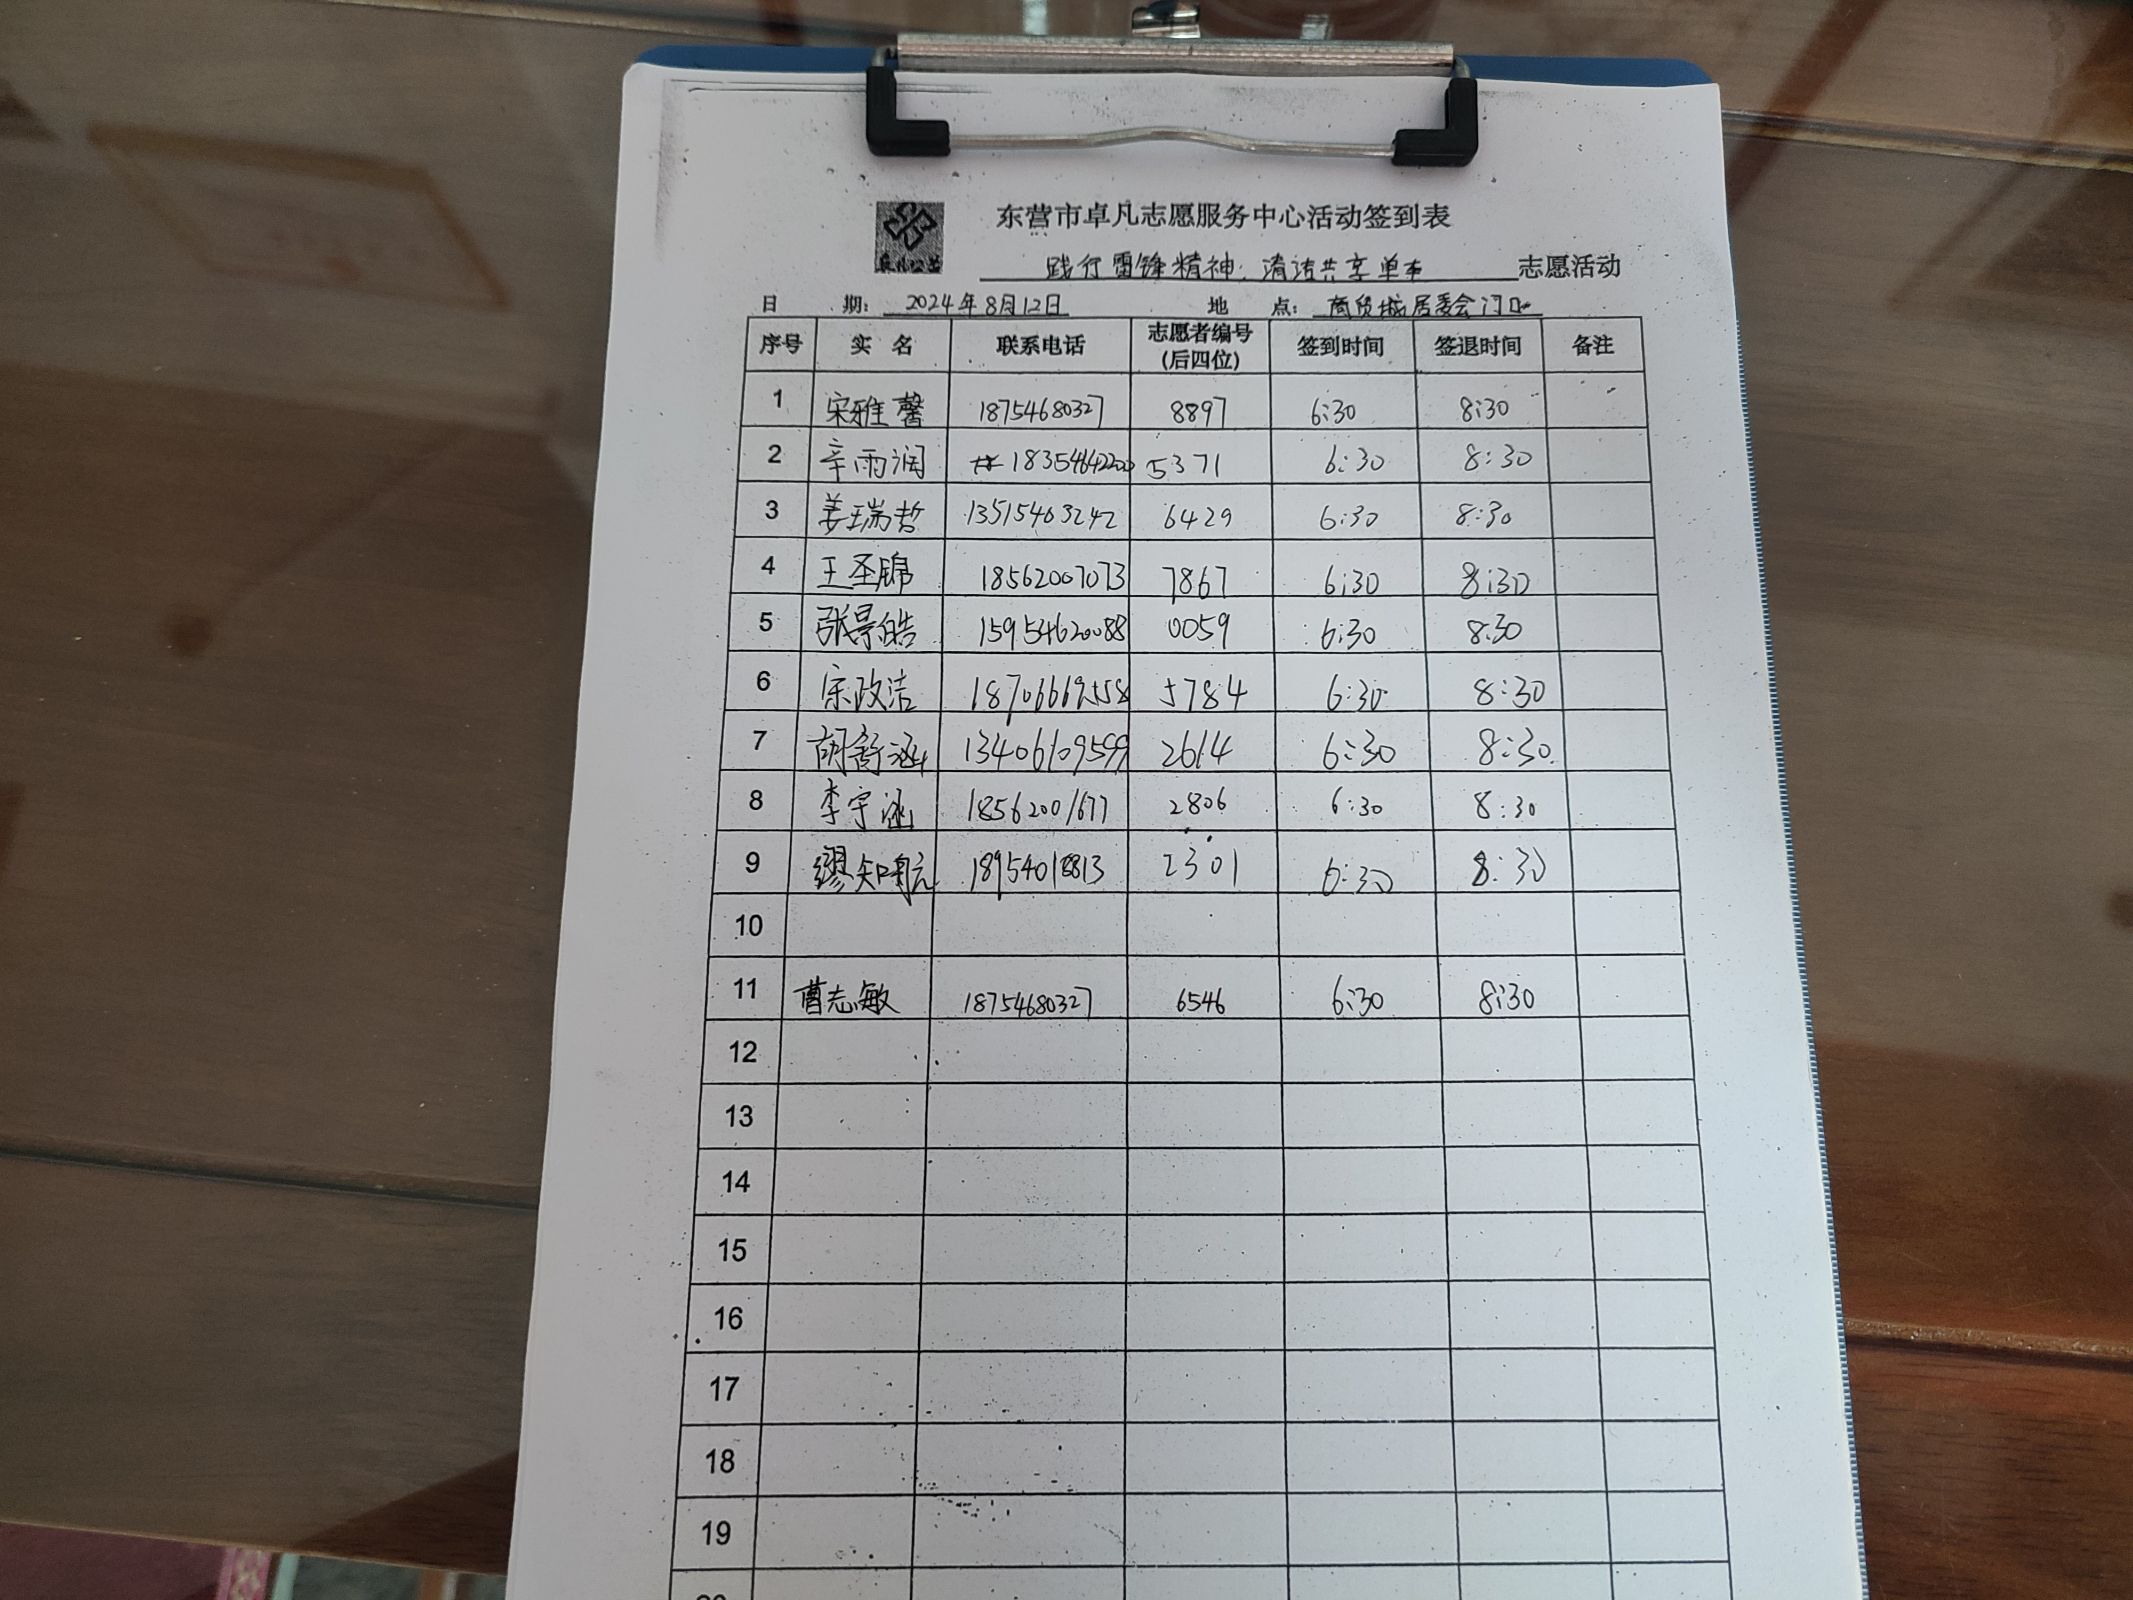 东营市卓凡志愿服务中心活动签到表
卓凡公益
践行雷锋精神，清洁共享单车 志愿活动
日 期： 2024年8月12日 地 点： 商贸城居委会门口
序号 实 名 联系电话 志愿者编号(后四位) 签到时间 签退时间 备注
1 宋雅馨 18754680327 8897 6:30 8:30
2 辛雨润 18354642200 5371 6:30 8:30
3 姜瑞哲 13515463242 6429 6:30 8:30
4 王圣锦 18562007073 7867 6:30 8:30
5 张景皓 15954620088 0059 6:30 8:30
6 宋政洁 18706669558 5784 6:30 8:30
7 胡舒涵 13406109599 2614 6:30 8:30
8 李宇涵 18562001677 2806 6:30 8:30
9 缪知航 18954018813 2301 6:30 8:30
10
11 曹志敏 18754680327 6546 6:30 8:30
12
13
14
15
16
17
18
19